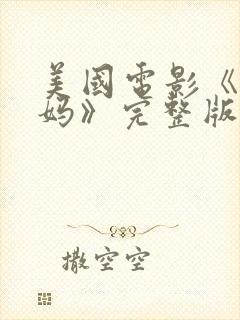 美國電影《
妈》完整版
撒空空